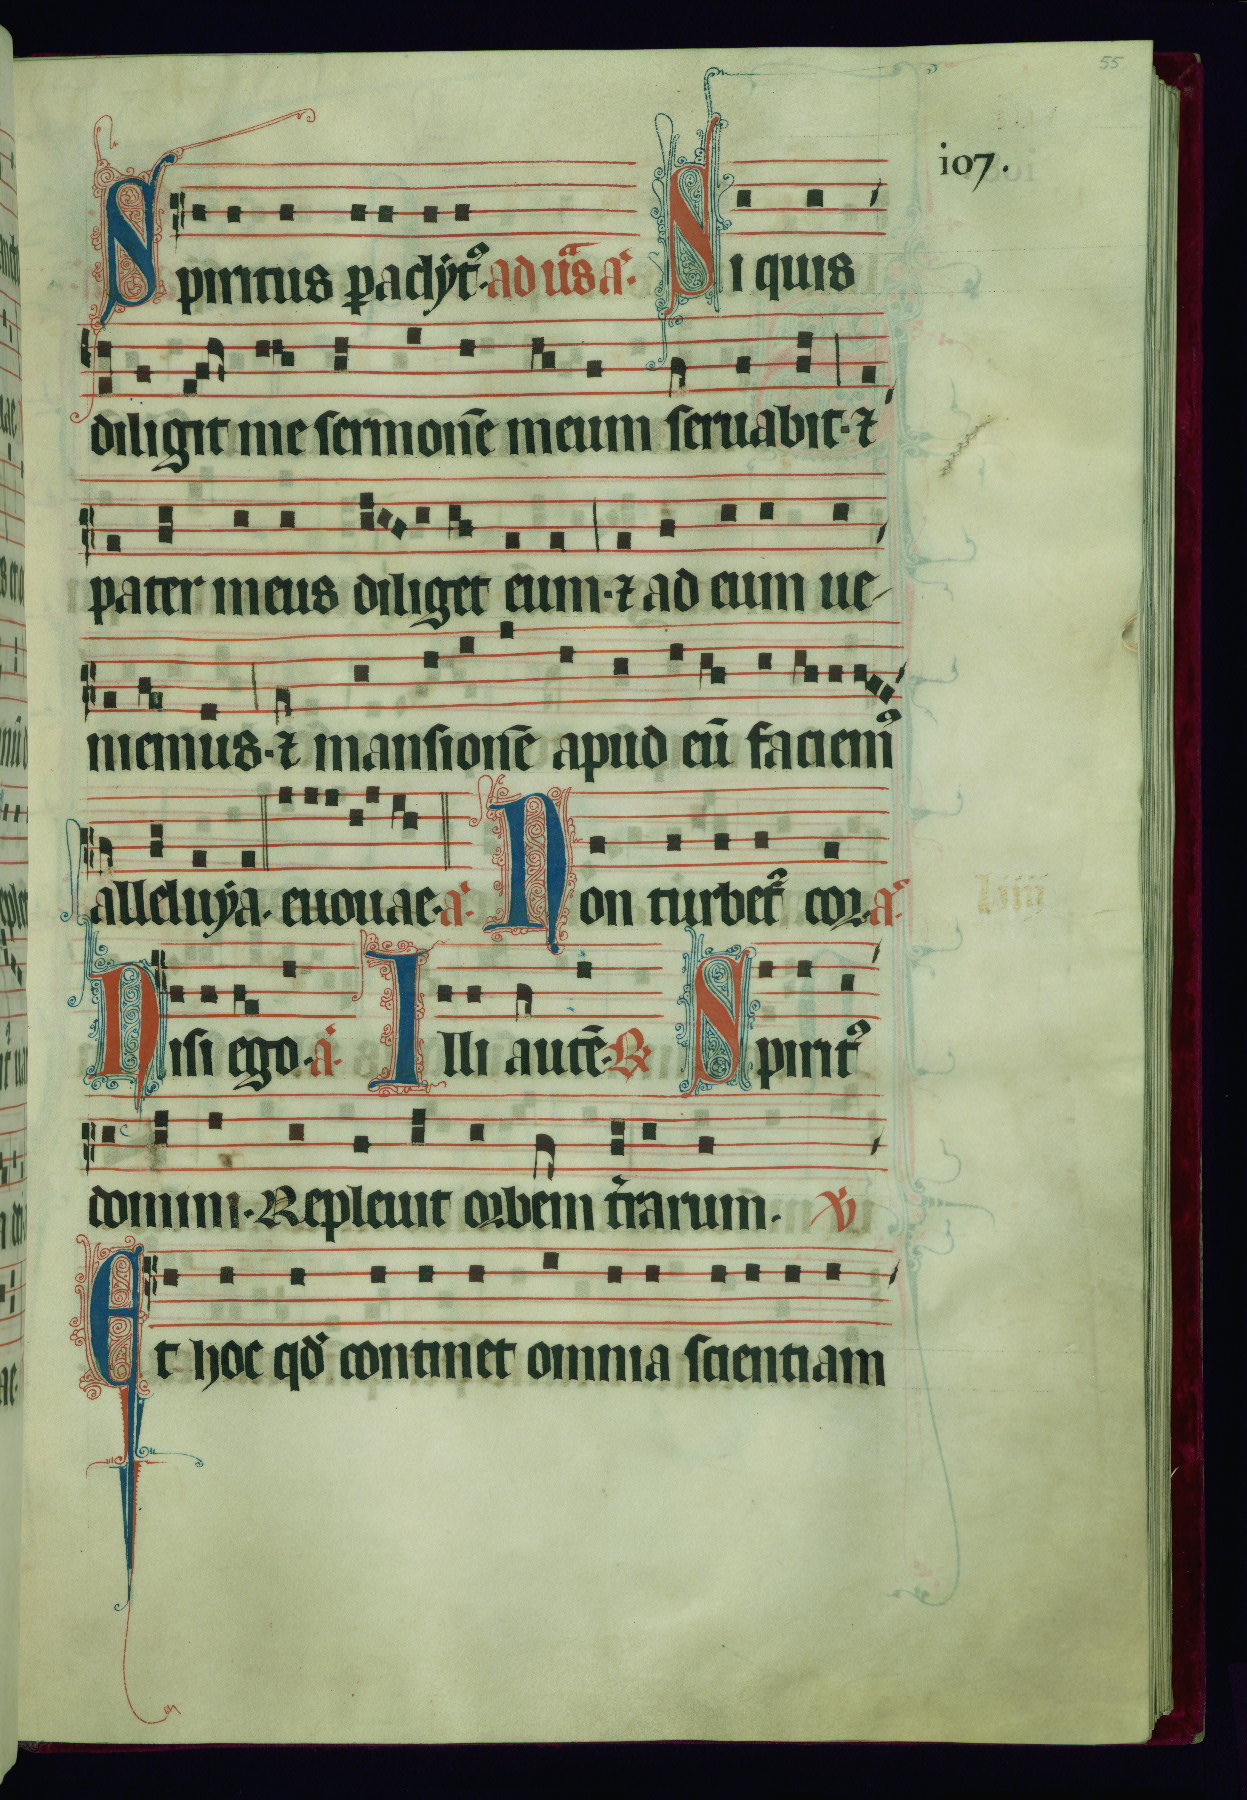 55
107.
Spiritus paclyt᷒. ad uēs a᷒. Si quis
diligit me sermonē meum seruabit. ⁊
pater meus diliget eum. ⁊ ad eum ue-
niemus. ⁊ mansionē apud eū faciem᷒
alleluya. euouae. a᷒. Non turbet᷒ cor. a᷒.
Nisi ego. a᷒. Illi autē. ℟ Spirit᷒
domini. Repleuit orbem t̄rarum. ℣
Et hoc qd̛ continet omnia scientiam